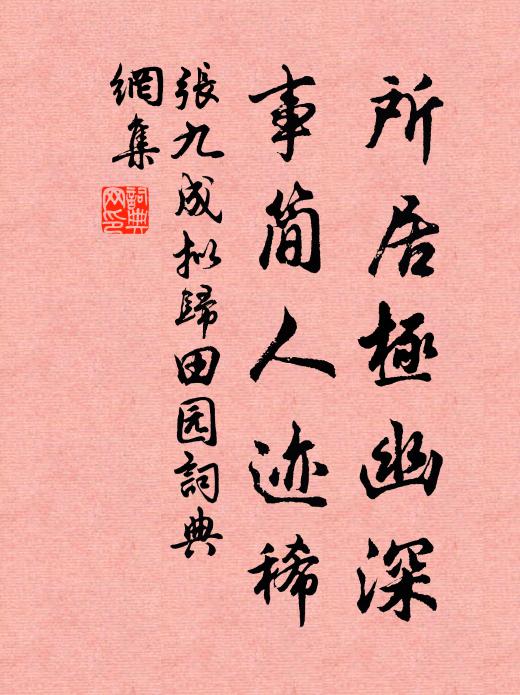 所居極幽深
事简人迹稀
張九成拟歸田园詞典
網集
詞典
网印